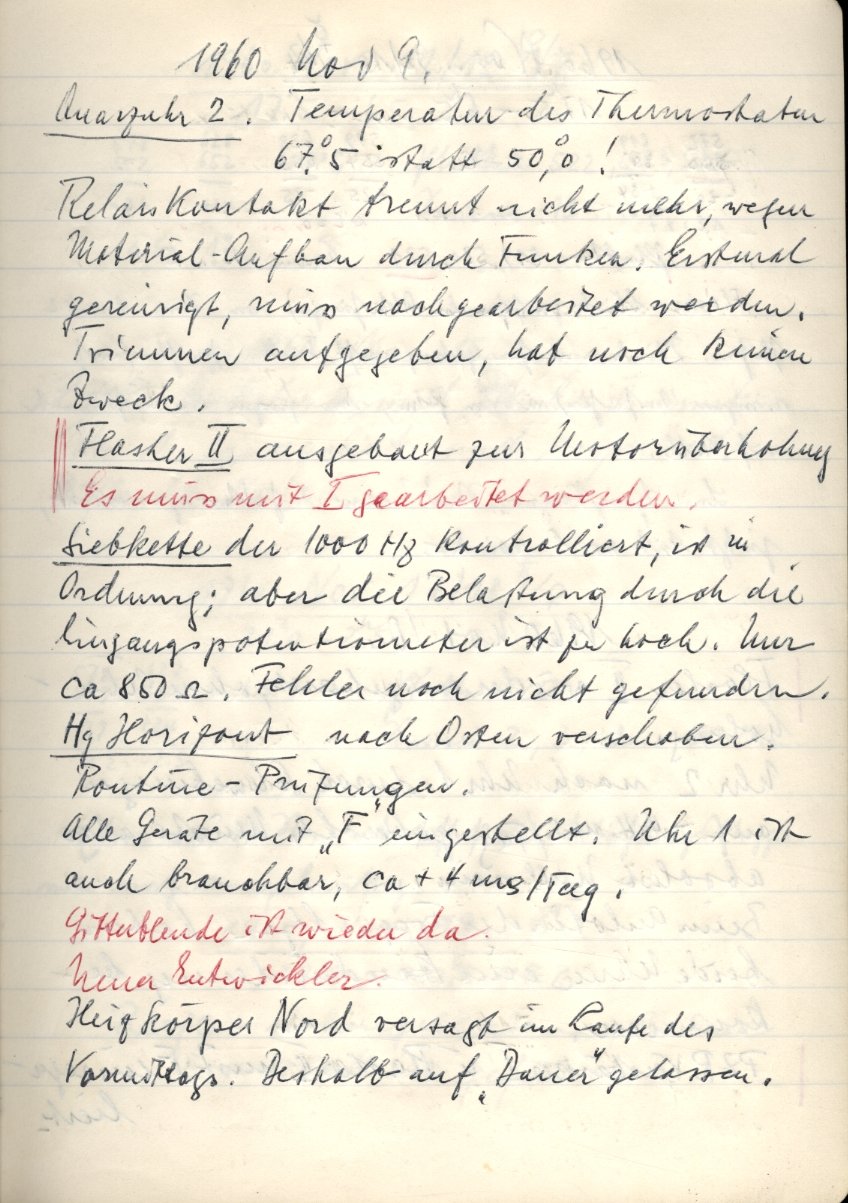 1960 Nov 9.
Quarzuhr 2. Temperatur des Thermostaten
67°.5 statt 50°,0!
Relais Kontakt trennt nicht mehr, wegen
Material-Aufbau durch Funken. Erstmal
gereinigt, muss nachgearbeitet werden.
Trimmen aufgegeben, hat noch keinen
Zweck.
Flasher II ausgebaut zur Motorüberholung
Es muss mit I gearbeitet werden.
Siebkette der 1000 Hz kontrolliert, ist in
Ordnung; aber die Belastung durch die
Eingangspotentiometer ist zu hoch. Nur
ca 850 Ω. Fehler noch nicht gefunden.
Hg Horizont nach Osten verschoben.
Routine-Prüfungen.
Alle Geräte mit „F" eingestellt. Uhr 1 ist
auch brauchbar, ca + 4 ms/Tag.
Gitterblende ist wieder da.
Neuer Entwickler.
Heizkörper Nord versagt im Laufe des
Vormittags. Deshalb auf „Dauer" gelassen.